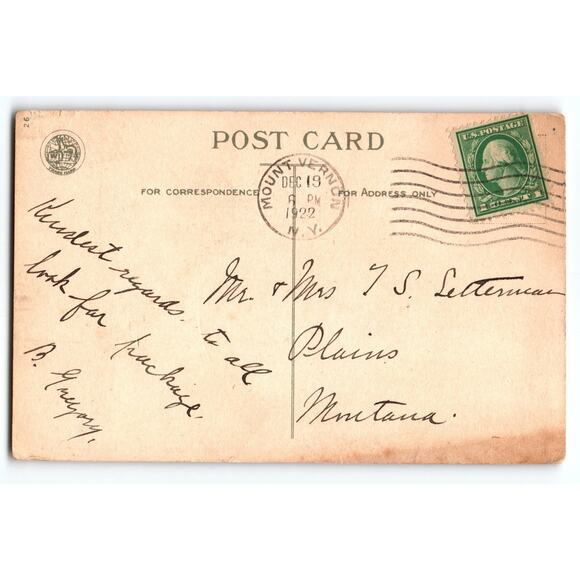 26
POST CARD
FOR CORRESPONDENCE
FOR ADDRESS ONLY
MOUNT VERNON
DEC 19
6 PM
1922
N.Y.
U.S. POSTAGE
Kindest regards to all
look for package.
B. Gregory,
Mr. & Mrs T S. Letterman
Plains
Montana.